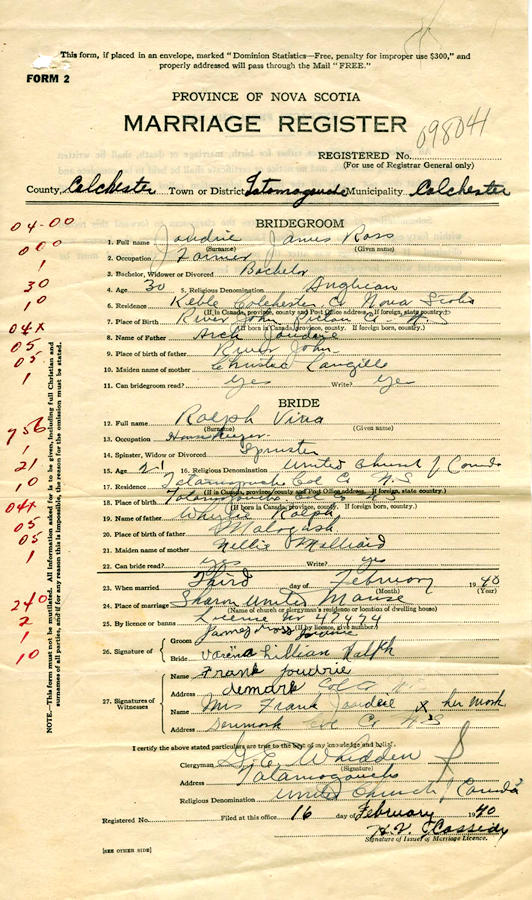 This form, if placed in an envelope, marked "Dominion Statistics—Free, penalty for improper use $300," and
properly addressed will pass through the Mail "FREE."
FORM 2
PROVINCE OF NOVA SCOTIA
MARRIAGE REGISTER
098041
REGISTERED No.
(For use of Registrar General only)
County, Colchester Town or District Tatamagouche Municipality Colchester
BRIDEGROOM
1. Full name Joudrie James Ross
(Surname) (Given name)
2. Occupation Farmer
3. Bachelor, Widower or Divorced Bachelor
4. Age 30 5. Religious Denomination Anglican
6. Residence Keble Colchester Co Nova Scotia
(If in Canada, province, county and Post Office address. If foreign, state country.)
7. Place of Birth River John Pictou Co
(If born in Canada, province, county. If foreign born, country.)
8. Name of Father Arch Joudrie
9. Place of birth of father River John
10. Maiden name of mother Christa Langille
11. Can bridegroom read? yes Write? yes
BRIDE
12. Full name Ralph Vina
(Surname) (Given name)
13. Occupation Housekeeper
14. Spinster, Widow or Divorced Spinster
15. Age 21 16. Religious Denomination United Church of Canada
17. Residence Tatamagouche Col Co N.S
(If in Canada, province, county and Post Office address. If foreign, state country.)
18. Place of birth Tatamagouche
(If born in Canada, province, county. If foreign born, country.)
19. Name of father Ralph
20. Place of birth of father Malagash
21. Maiden name of mother Nellie
22. Can bride read? yes Write? yes
23. When married Third day of February 1940
(Month) (Year)
24. Place of marriage Sharon United Manse
(Name of church or clergyman's residence or location of dwelling house)
25. By licence or banns License Nr 47474
(If by licence, give number)
26. Signature of Groom James Ross Joudrie
Bride Varena Lillian Ralph
27. Signatures of Witnesses
Name Frank Joudrie
Address demark Col Co N.S
Name Mrs Frank Joudrie X her mark
Address Denmark Col Co N S
I certify the above stated particulars are true to the best of my knowledge and belief.
Clergyman Whidden
(Signature)
Address Tatamagouche
Religious Denomination United Church of Canada
Registered No. Filed at this office 16 day of February 1940
Cassidy
Signature of Issuer of Marriage Licence.
[SEE OTHER SIDE]
NOTE.—This form must not be mutilated. All information asked for is to be given, including full Christian and
surnames of all parties, and if for any reason this is impossible, the reason for the omission must be stated.
04-00
000
1
30
10
04x
05
05
1
756
1
21
10
04x
05
05
1
240
2
1
10